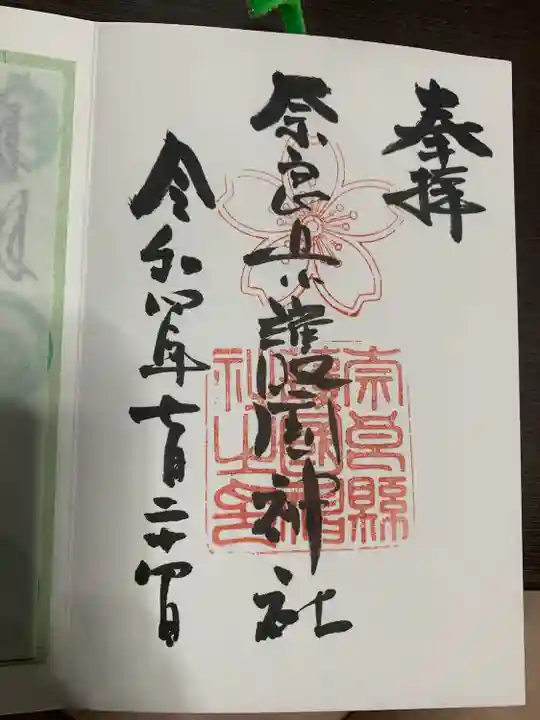 奉拝
奈良県護国神社
令和四年七月二十四日
奈良縣
護國神
社之印